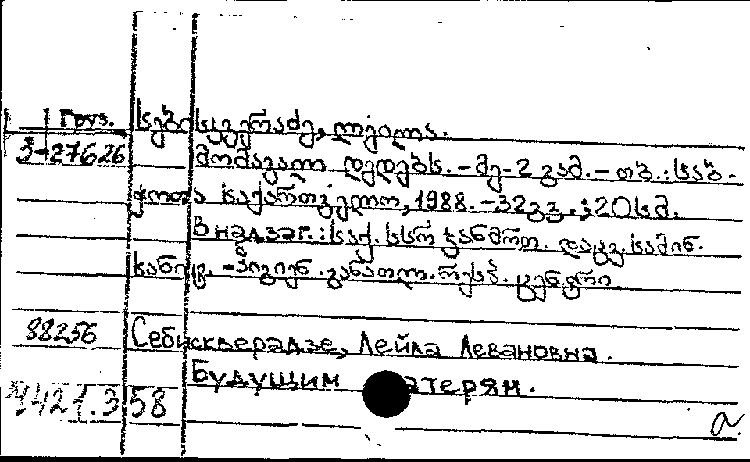 Груз. სებისკვერაძე, ლეილა.
3-27626 მომავალ დედებს. – მე-2 გამ. – თბ.: საბ-
ჭოთა საქართველო, 1988. – 32გვ.; 20სმ.
В надзаг.: საქ. სსრ ჯანმრთ. დაცვ. სამინ.
სანიტ. – ჰიგიენ. განათლ. რესპ. ცენტრი
88256 Себискверадзе, Лейла Левановна.
Будущим матерям.
421.3 58
a